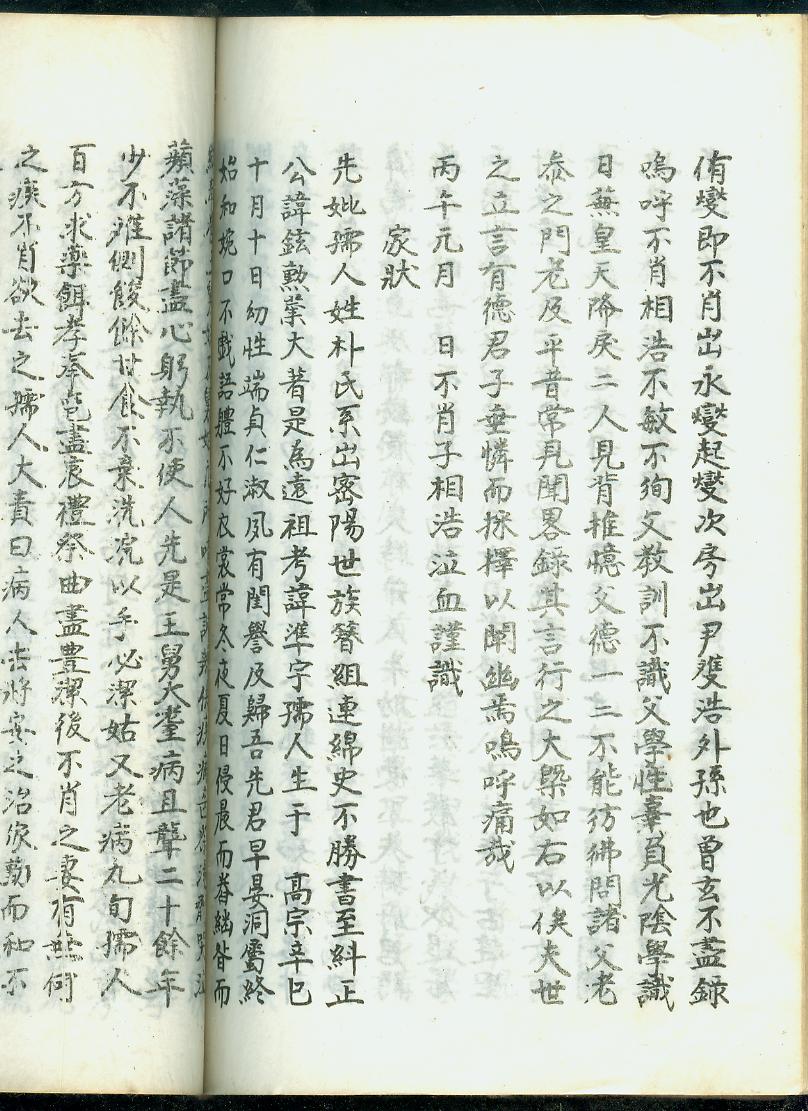 侑燮即不肖出永燮起燮次房出尹㕠浩外孫也曾玄不盡錄
嗚呼不肖相浩不敏不徇父教訓不識父學性辜負光陰學識
日蕪皇天降戾二人見背推憶父德一二不能彷彿問諸父老
忝之門老及平昔常見聞畧錄其言行之大槩如右以俟夫世
之立言有德君子垂憐而採擇以闡幽焉嗚呼痛哉
丙午元月 日不肖子相浩泣血謹識
家狀
先妣孺人姓朴氏系出密陽世族簪組連綿史不勝書至糾正
公諱鉉勲業大著是為遠祖考諱準字孺人生于 高宗辛巳
十月十日幼性端貞仁淑夙有閨譽及歸吾先君早晏洞屬終
始和婉口不戲語軆不好衣裳常冬夜夏日侵晨而
蘋藻諸節盡心躬執不使人先是王舅大耋病且聾二十餘年
少不離側餕餘甘食不棄洗浣以手必潔姑又老病九旬孺人
百方求藥餌孝奉盡哀禮祭曲盡豊潔後不肖之妻有無何
之疾不肖欲去之孺人大責曰病人去將安之治家勤而和不